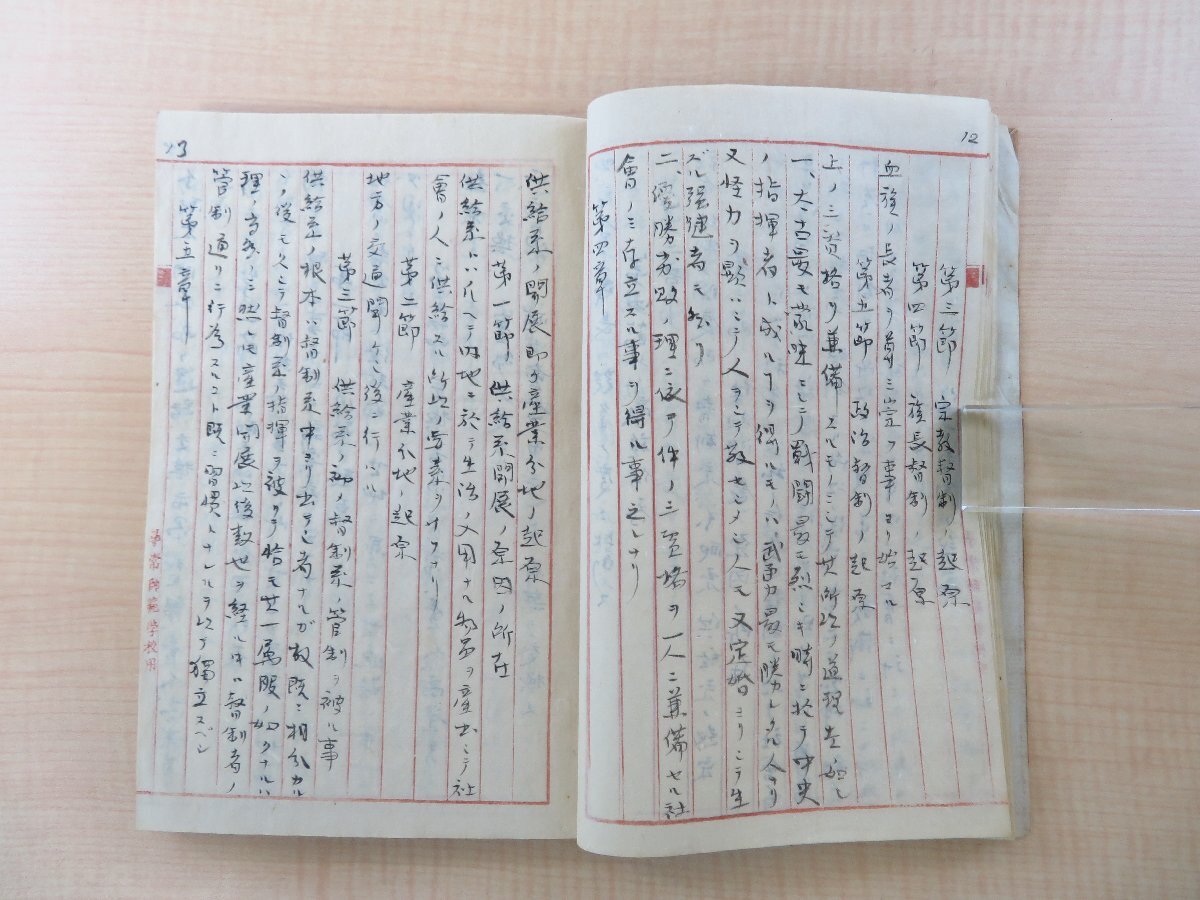 12
第三節 宗教督制ノ起原
第四節 族長督制ノ起原
血族ノ長者ヲ尊ミ崇フ事ヨリ始マル
第五節 政治督制ノ起原
上ノ三資格ヲ兼備スルモノニシテ其所以ノ道理左ノ如シ
一、太古最モ蒙昧ニシテ戦闘最モ烈シキ時ニ於テ中央
ノ指揮者ト成ルヿヲ得ルモノハ武勇力最モ勝レタル人ナリ
又怪力ヲ顕ハシテ人ヲシテ敬セシメシ人モ又定婚ヨリシテ生
ズル強健者モ然リ
二、優勝劣敗ノ理ニ依テ件ノ三資格ヲ一人ニ兼備セル社
會ノミ存立スル事ヲ得ル事之レナリ
第四章
13
供給系ノ開展即チ産業分地ノ起原
第一節 供給系開展ノ原因ノ所在
供給系トハ凡ヘテ内地ニ於テ生活ノ入用ナル物品ヲ産出シテ社
會ノ人ニ供給スル所以ノ労素ヲナスナリ
第二節 産業分地ノ起原
地方ノ交通開ケシ後ニ行ハル
第三節 供給系ノ初メ督制系ノ管制ヲ被ル事
供給系ノ根本ハ督制系中ヨリ出テシ者ナルガ故既ニ相分カル
ノ後モ久シク督制系ノ指揮ヲ被リテ恰モ其一属服ノ如クナルハ
理ノ当然ノミ然レモ産業開展以後数世ヲ経ル中ハ督制者ノ
管制通リニ行為スルコト既ニ習慣トナレルヲ以テ獨立スベシ
第五章
尋常師範学校用